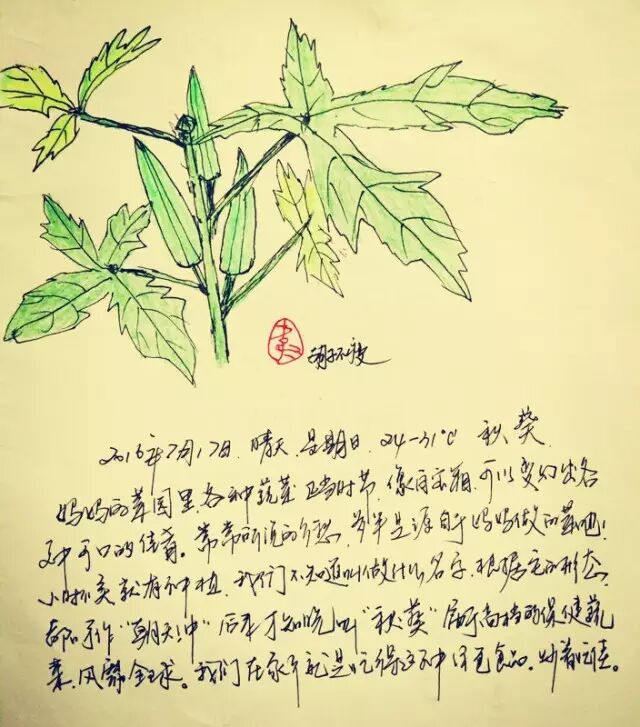 2016年7月17日.晴天.星期日.24-31℃ 秋葵.
妈妈的菜园里各种蔬菜正当时节,像百宝箱,可以变幻出各
种可口的佳肴。常常所说的乡愁,多半是源自于妈妈做的菜吧!
小时候就有种植,我们不知道叫做什么名字,根据它的形态,
都称作“朝天冲”后来才知晓叫“秋葵”属于高档的保健蔬
菜,风靡全球。我们在家乡就是吃得这种绿色食品,炒着吃佳。